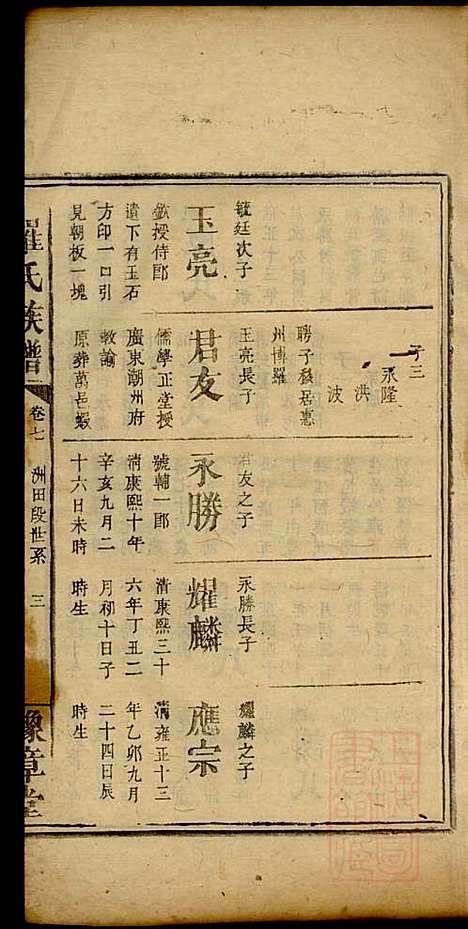 子三
永隆
洪
波
毓廷次子
玉亮
欽授侍郎
遺下有玉石
方印一口引
見朝板一塊
聘子發居惠
州博羅
玉亮長子
君友
儒學正堂授
廣東潮州府
教諭
原葬萬邑蝦
君友之子
永勝
號輔一郎
清康熙十年
辛亥九月二
十六日未時
永勝長子
耀麟
清康熙三十
六年丁丑二
月初十日子
時生
耀麟之子
應宗
清雍正十三
年乙卯九月
二十四日辰
時生
羅氏族譜
卷七
洲田段世系
三
豫章堂